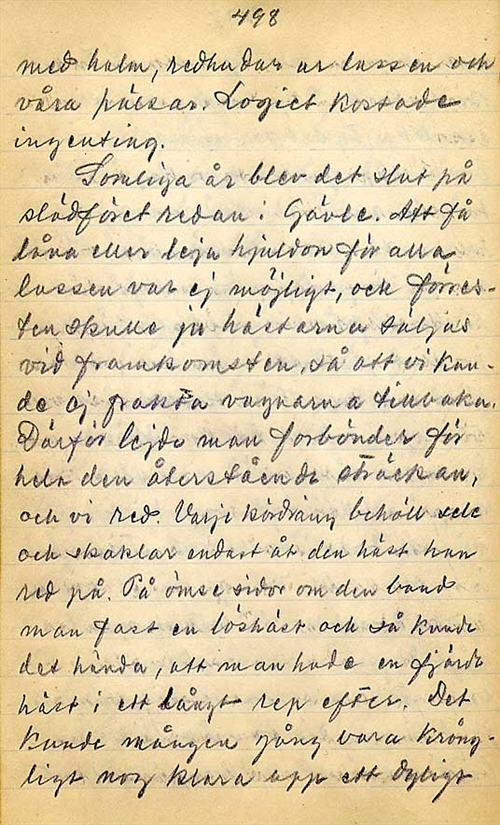 498
med halm, redhudar ur lassen och
våra pälsar. Logiet kostade
ingenting.
Somliga år blev det slut på
slädföret redan i Gävle. Att få
låna eller leja hjuldon för alla
lassen var ej möjligt, och förres-
ten skulle ju hästarna säljas
vid framkomsten, så att vi kun-
de ej frakta vagnarna tillbaka.
Därför lejde man forbönder för
hela den återstående sträckan,
och vi red. Varje kördräng behöll sele
och skaklar endast åt den häst han
red på. På ömse sidor om den band
man fast en löshäst och så kunde
det hända, att man hade en fjärde
häst i ett långt rep efter. Det
kunde mången gång vara krång-
ligt nog klara upp ett dyligt